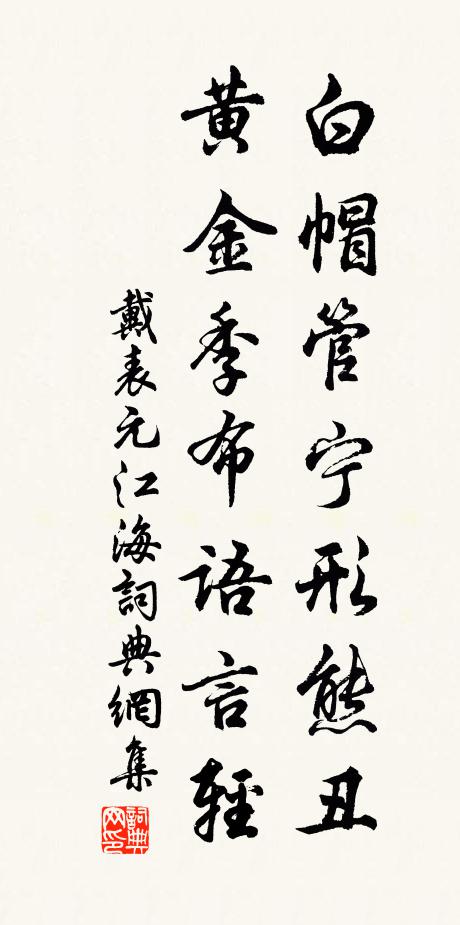 白帽管宁形態丑
黄金季布語言輕
戴表元江海詞典網集
詞典
网印